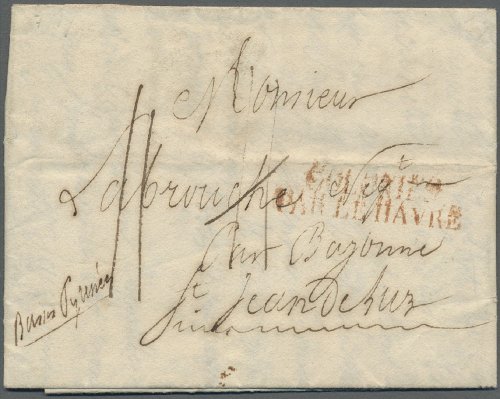 Monsieur
Labrouche Negt
COLONIES
PAR LE HAVRE
Par Bayonne
St Jean de Luz
Basses Pyrenées